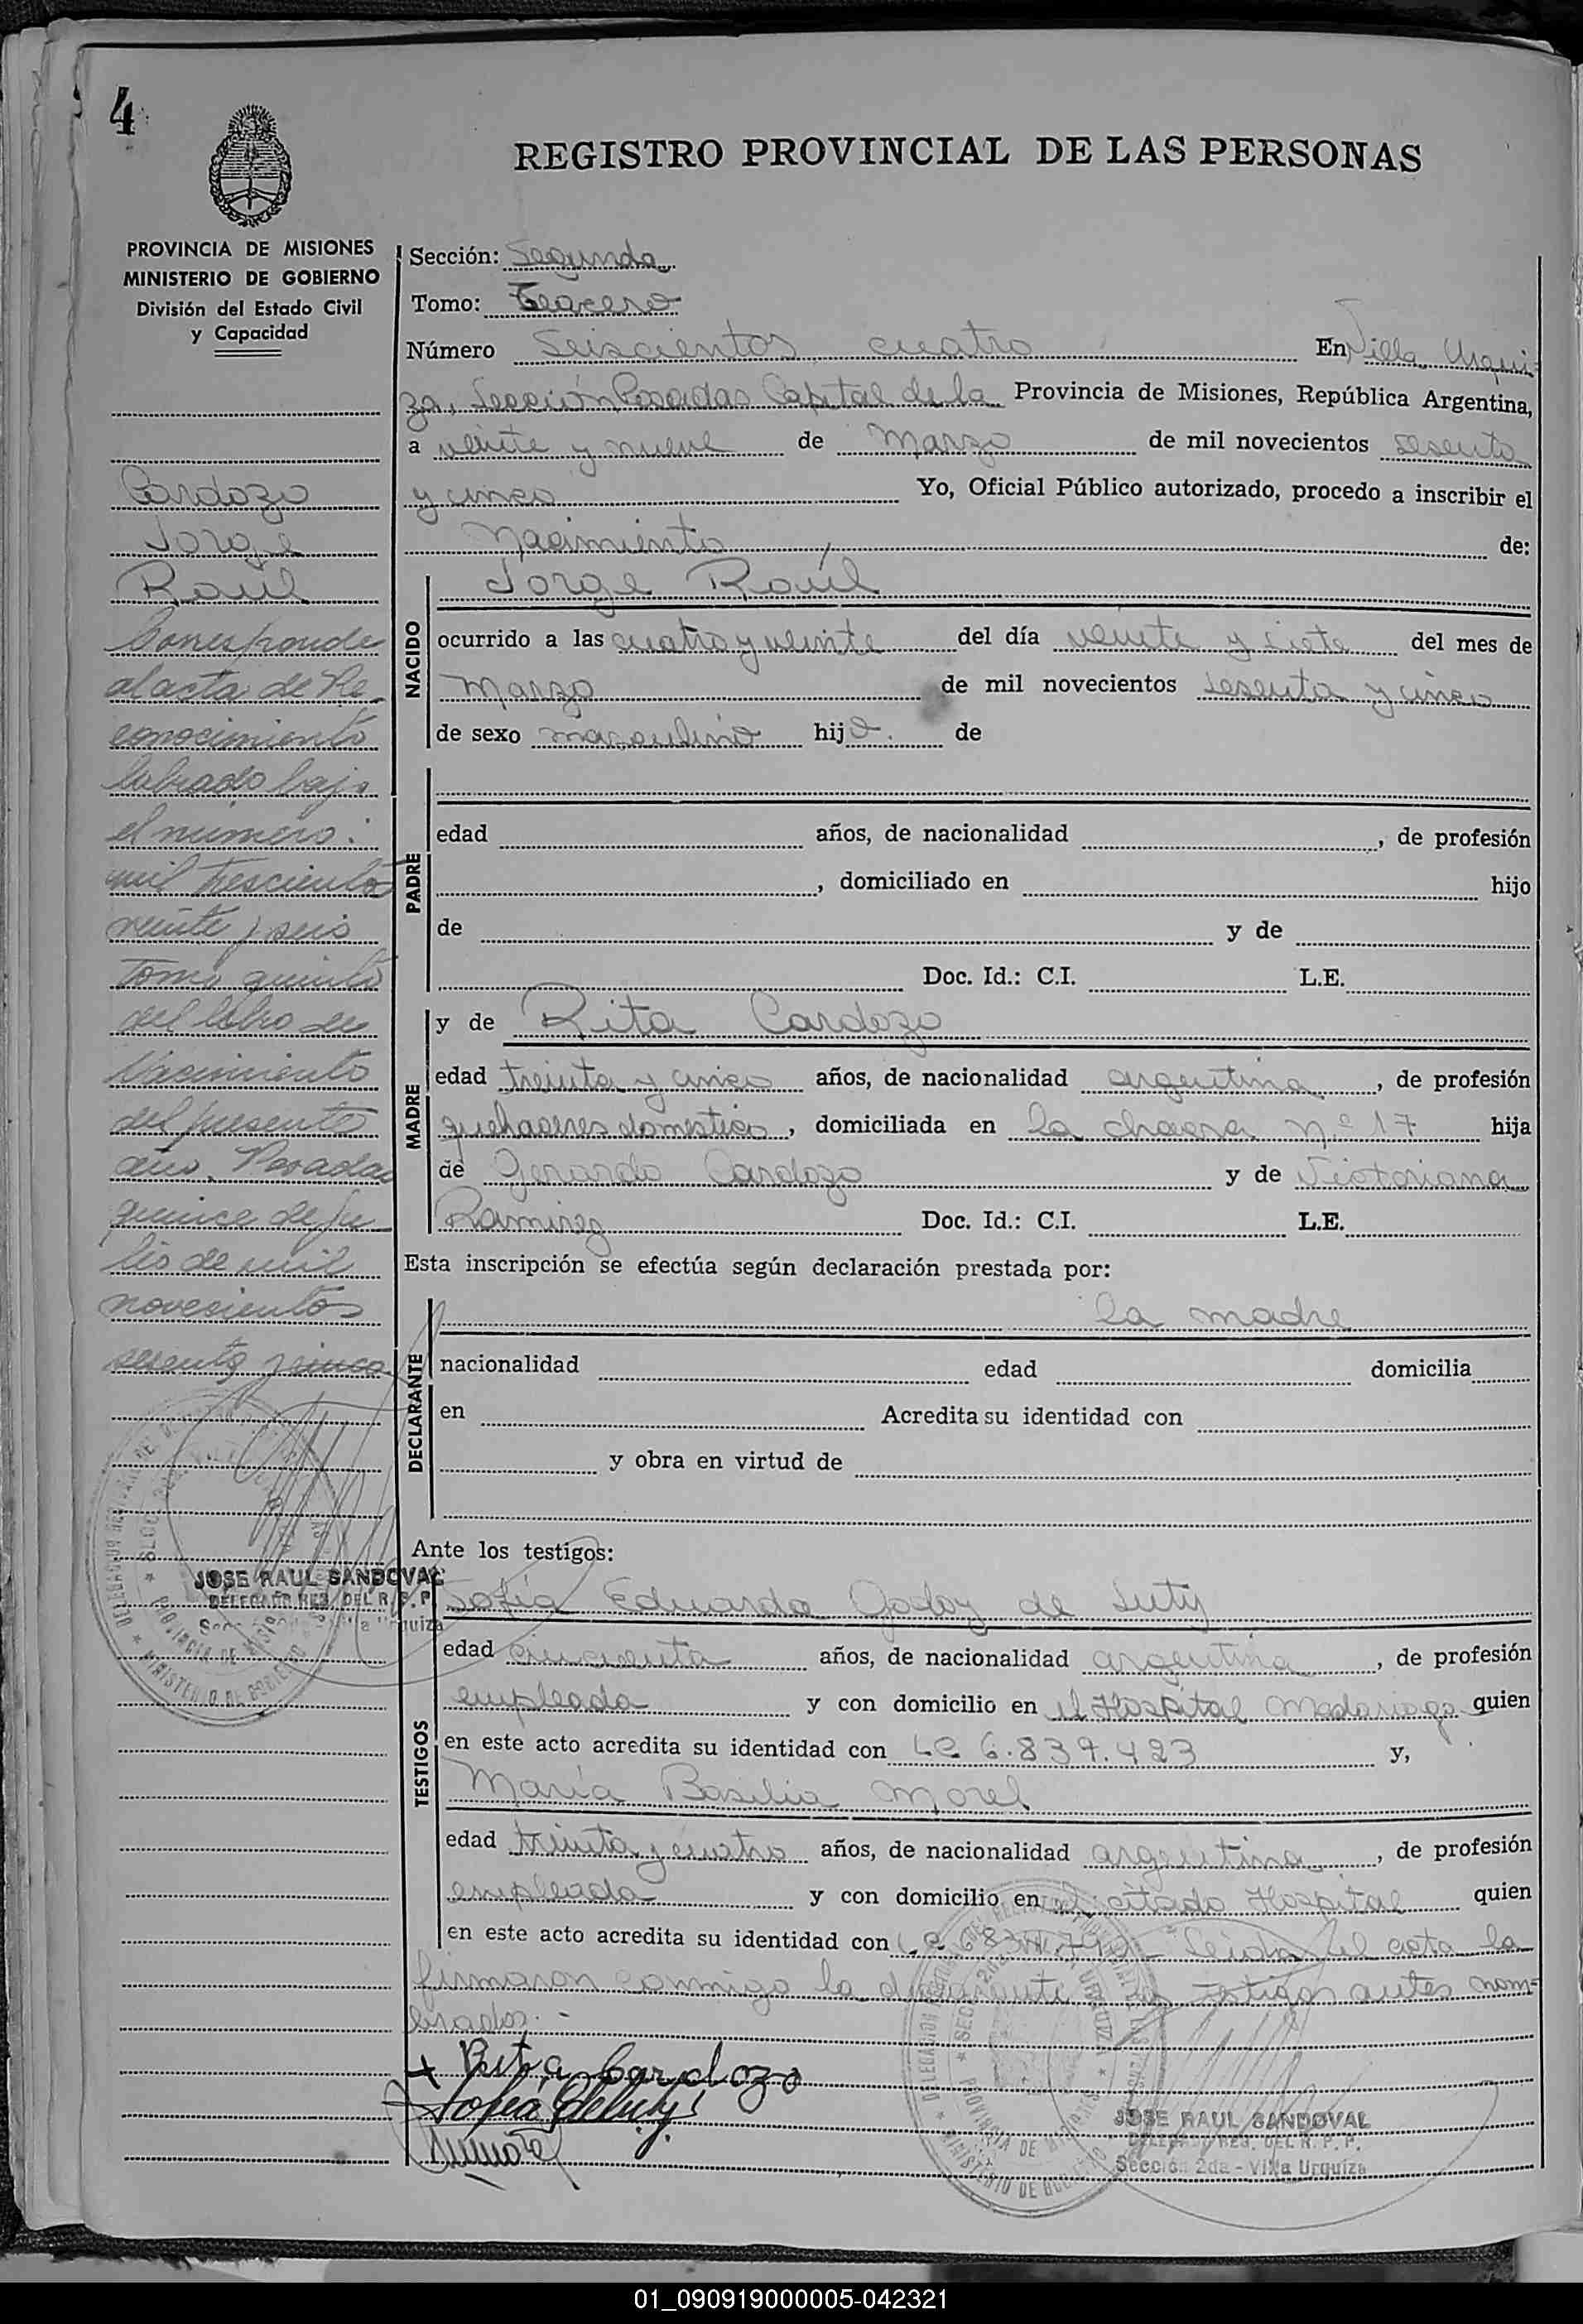 4
REGISTRO PROVINCIAL DE LAS PERSONAS
PROVINCIA DE MISIONES
MINISTERIO DE GOBIERNO
División del Estado Civil
y Capacidad
Cardozo
Jorge
Raúl
Corresponde
al acta de Re-
conocimiento
labrado bajo
el número:
mil trescientos
veinte y seis
Tomo quinto
del libro de
Nacimiento
del presente
año. Posadas
quince de ju
lio de mil
novecientos
sesenta y cinco
JOSE RAUL SANDOVAL
DELEGADO REG. DEL R. P. P.
Sección: Segunda
Tomo: Tercero
Número Seiscientos cuatro En Villa Urqui-
za, Sección Posadas Capital de la Provincia de Misiones, República Argentina,
a veinte y nueve de Marzo de mil novecientos sesenta
y cinco Yo, Oficial Público autorizado, procedo a inscribir el
Nacimiento de:
NACIDO
Jorge Raúl
ocurrido a las cuatro y veinte del día veinte y siete del mes de
Marzo de mil novecientos sesenta y cinco
de sexo masculino hijo. de
PADRE
edad años, de nacionalidad , de profesión
, domiciliado en hijo
de y de
Doc. Id.: C.I. L.E.
MADRE
y de Rita Cardozo
edad treinta y cinco años, de nacionalidad argentina, de profesión
quehaceres domesticos, domiciliada en la chacra n.º 17 hija
de Gerardo Cardozo y de Victoriana
Ramirez Doc. Id.: C.I. L.E.
Esta inscripción se efectúa según declaración prestada por:
DECLARANTE
la madre
nacionalidad edad domicilia
en Acredita su identidad con
y obra en virtud de
Ante los testigos:
TESTIGOS
Sofía Eduarda Godoy de Suty
edad cincuenta años, de nacionalidad argentina, de profesión
empleada y con domicilio en el Hospital Madariaga quien
en este acto acredita su identidad con LC 6.839.423 y,
María Basilia Morel
edad treinta y cuatro años, de nacionalidad argentina, de profesión
empleada y con domicilio en el citado Hospital quien
en este acto acredita su identidad con Leida el acta la
firmaron conmigo la declarante testigos antes nom-
brados.-
+ Rita Cardozo
JOSE RAUL SANDOVAL
DELEGADO REG. DEL R. P. P.
Sección 2da - Villa Urquiza
01_090919000005-042321